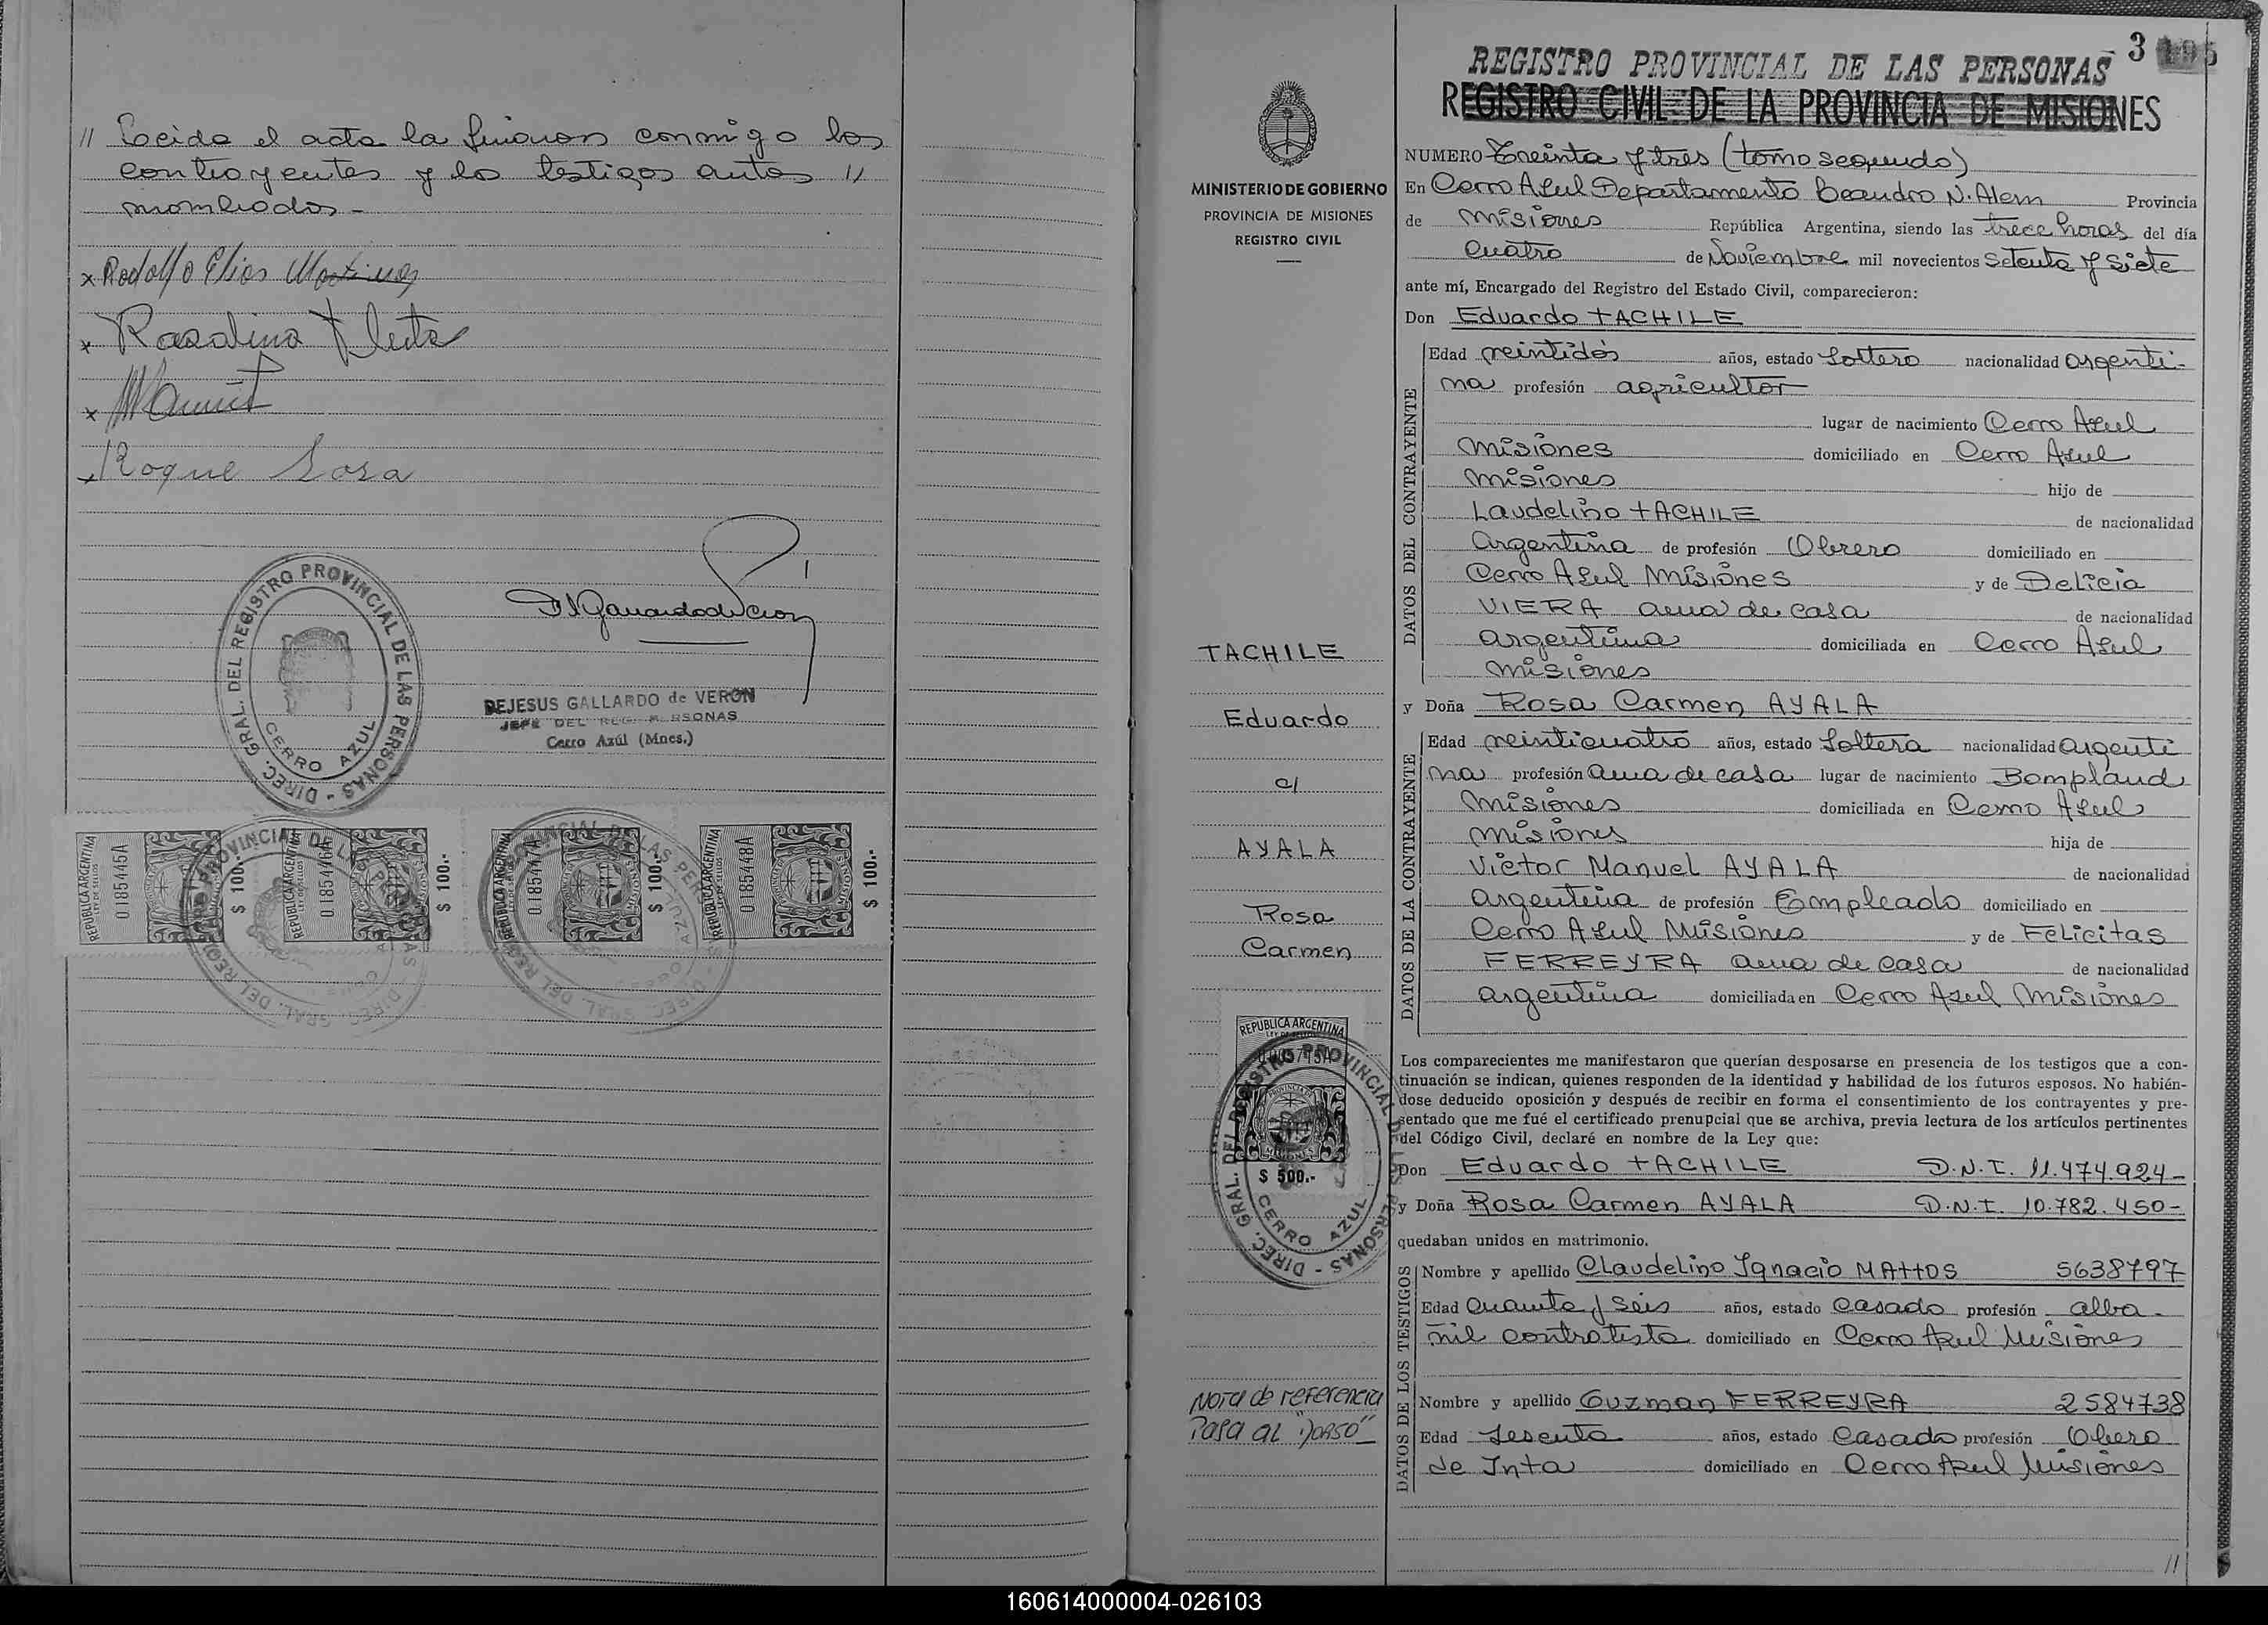 // Leida el acta la firman conmigo los
contrayentes y los testigos antes //
nombrados -
x Rodolfo Elias Martinez
x Rosalina
x
x Roque Sosa
DIREC. GRAL. DEL REGISTRO PROVINCIAL DE LAS PERSONAS -
CERRO AZUL
DEJESUS GALLARDO de VERON
JEFE DEL REG. PERSONAS
Cerro Azúl (Mnes.)
REPUBLICA ARGENTINA
LEY DE SELLOS
0185445A
$ 100.-
REPUBLICA ARGENTINA
0185446A
$ 100.-
REPUBLICA ARGENTINA
0185447A
$ 100.-
REPUBLICA ARGENTINA
LEY DE SELLOS
0185448A
$ 100.-
MINISTERIO DE GOBIERNO
PROVINCIA DE MISIONES
REGISTRO CIVIL
TACHILE
Eduardo
c/
AYALA
Rosa
Carmen
REPUBLICA ARGENTINA
$ 500.-
DIREC. GRAL. DEL REGISTRO PROVINCIAL DE LAS PERSONAS -
CERRO AZUL
Nota de referencia
Pasa al "Dorso"
3
REGISTRO PROVINCIAL DE LAS PERSONAS
REGISTRO CIVIL DE LA PROVINCIA DE MISIONES
NUMERO Treinta y tres (tomo segundo)
En Cerro Azul Departamento Leandro N. Alem Provincia
de Misiones República Argentina, siendo las trece horas del día
cuatro de Noviembre mil novecientos setenta y siete
ante mí, Encargado del Registro del Estado Civil, comparecieron:
Don Eduardo TACHILE
DATOS DEL CONTRAYENTE
Edad veintidós años, estado Soltero nacionalidad argenti-
na profesión agricultor
lugar de nacimiento Cerro Azul
Misiones domiciliado en Cerro Azul
Misiones hijo de
Laudelino TACHILE de nacionalidad
argentina de profesión Obrero domiciliado en
Cerro Azul Misiones y de Delicia
VIERA ama de casa de nacionalidad
argentina domiciliada en Cerro Azul
Misiones
y Doña Rosa Carmen AYALA
DATOS DE LA CONTRAYENTE
Edad veinticuatro años, estado Soltera nacionalidad argenti
na profesión ama de casa lugar de nacimiento Bompland
Misiones domiciliada en Cerro Azul
Misiones hija de
Victor Manuel AYALA de nacionalidad
argentina de profesión Empleado domiciliado en
Cerro Azul Misiones y de Felicitas
FERREYRA ama de casa de nacionalidad
argentina domiciliada en Cerro Azul Misiones
Los comparecientes me manifestaron que querían desposarse en presencia de los testigos que a con-
tinuación se indican, quienes responden de la identidad y habilidad de los futuros esposos. No habién-
dose deducido oposición y después de recibir en forma el consentimiento de los contrayentes y pre-
sentado que me fué el certificado prenupcial que se archiva, previa lectura de los artículos pertinentes
del Código Civil, declaré en nombre de la Ley que:
Don Eduardo TACHILE D.N.I. 11.474.924-
y Doña Rosa Carmen AYALA D.N.I. 10.782.450-
quedaban unidos en matrimonio.
DATOS DE LOS TESTIGOS
Nombre y apellido Claudelino Ignacio MATTOS 5638797
Edad Cuarenta y Seis años, estado Casado profesión alba-
ñil contratista domiciliado en Cerro Azul Misiones
Nombre y apellido Guzman FERREYRA 2584738
Edad Sesenta años, estado Casado profesión Obrero
de Inta domiciliado en Cerro Azul Misiones
//
160614000004-026103